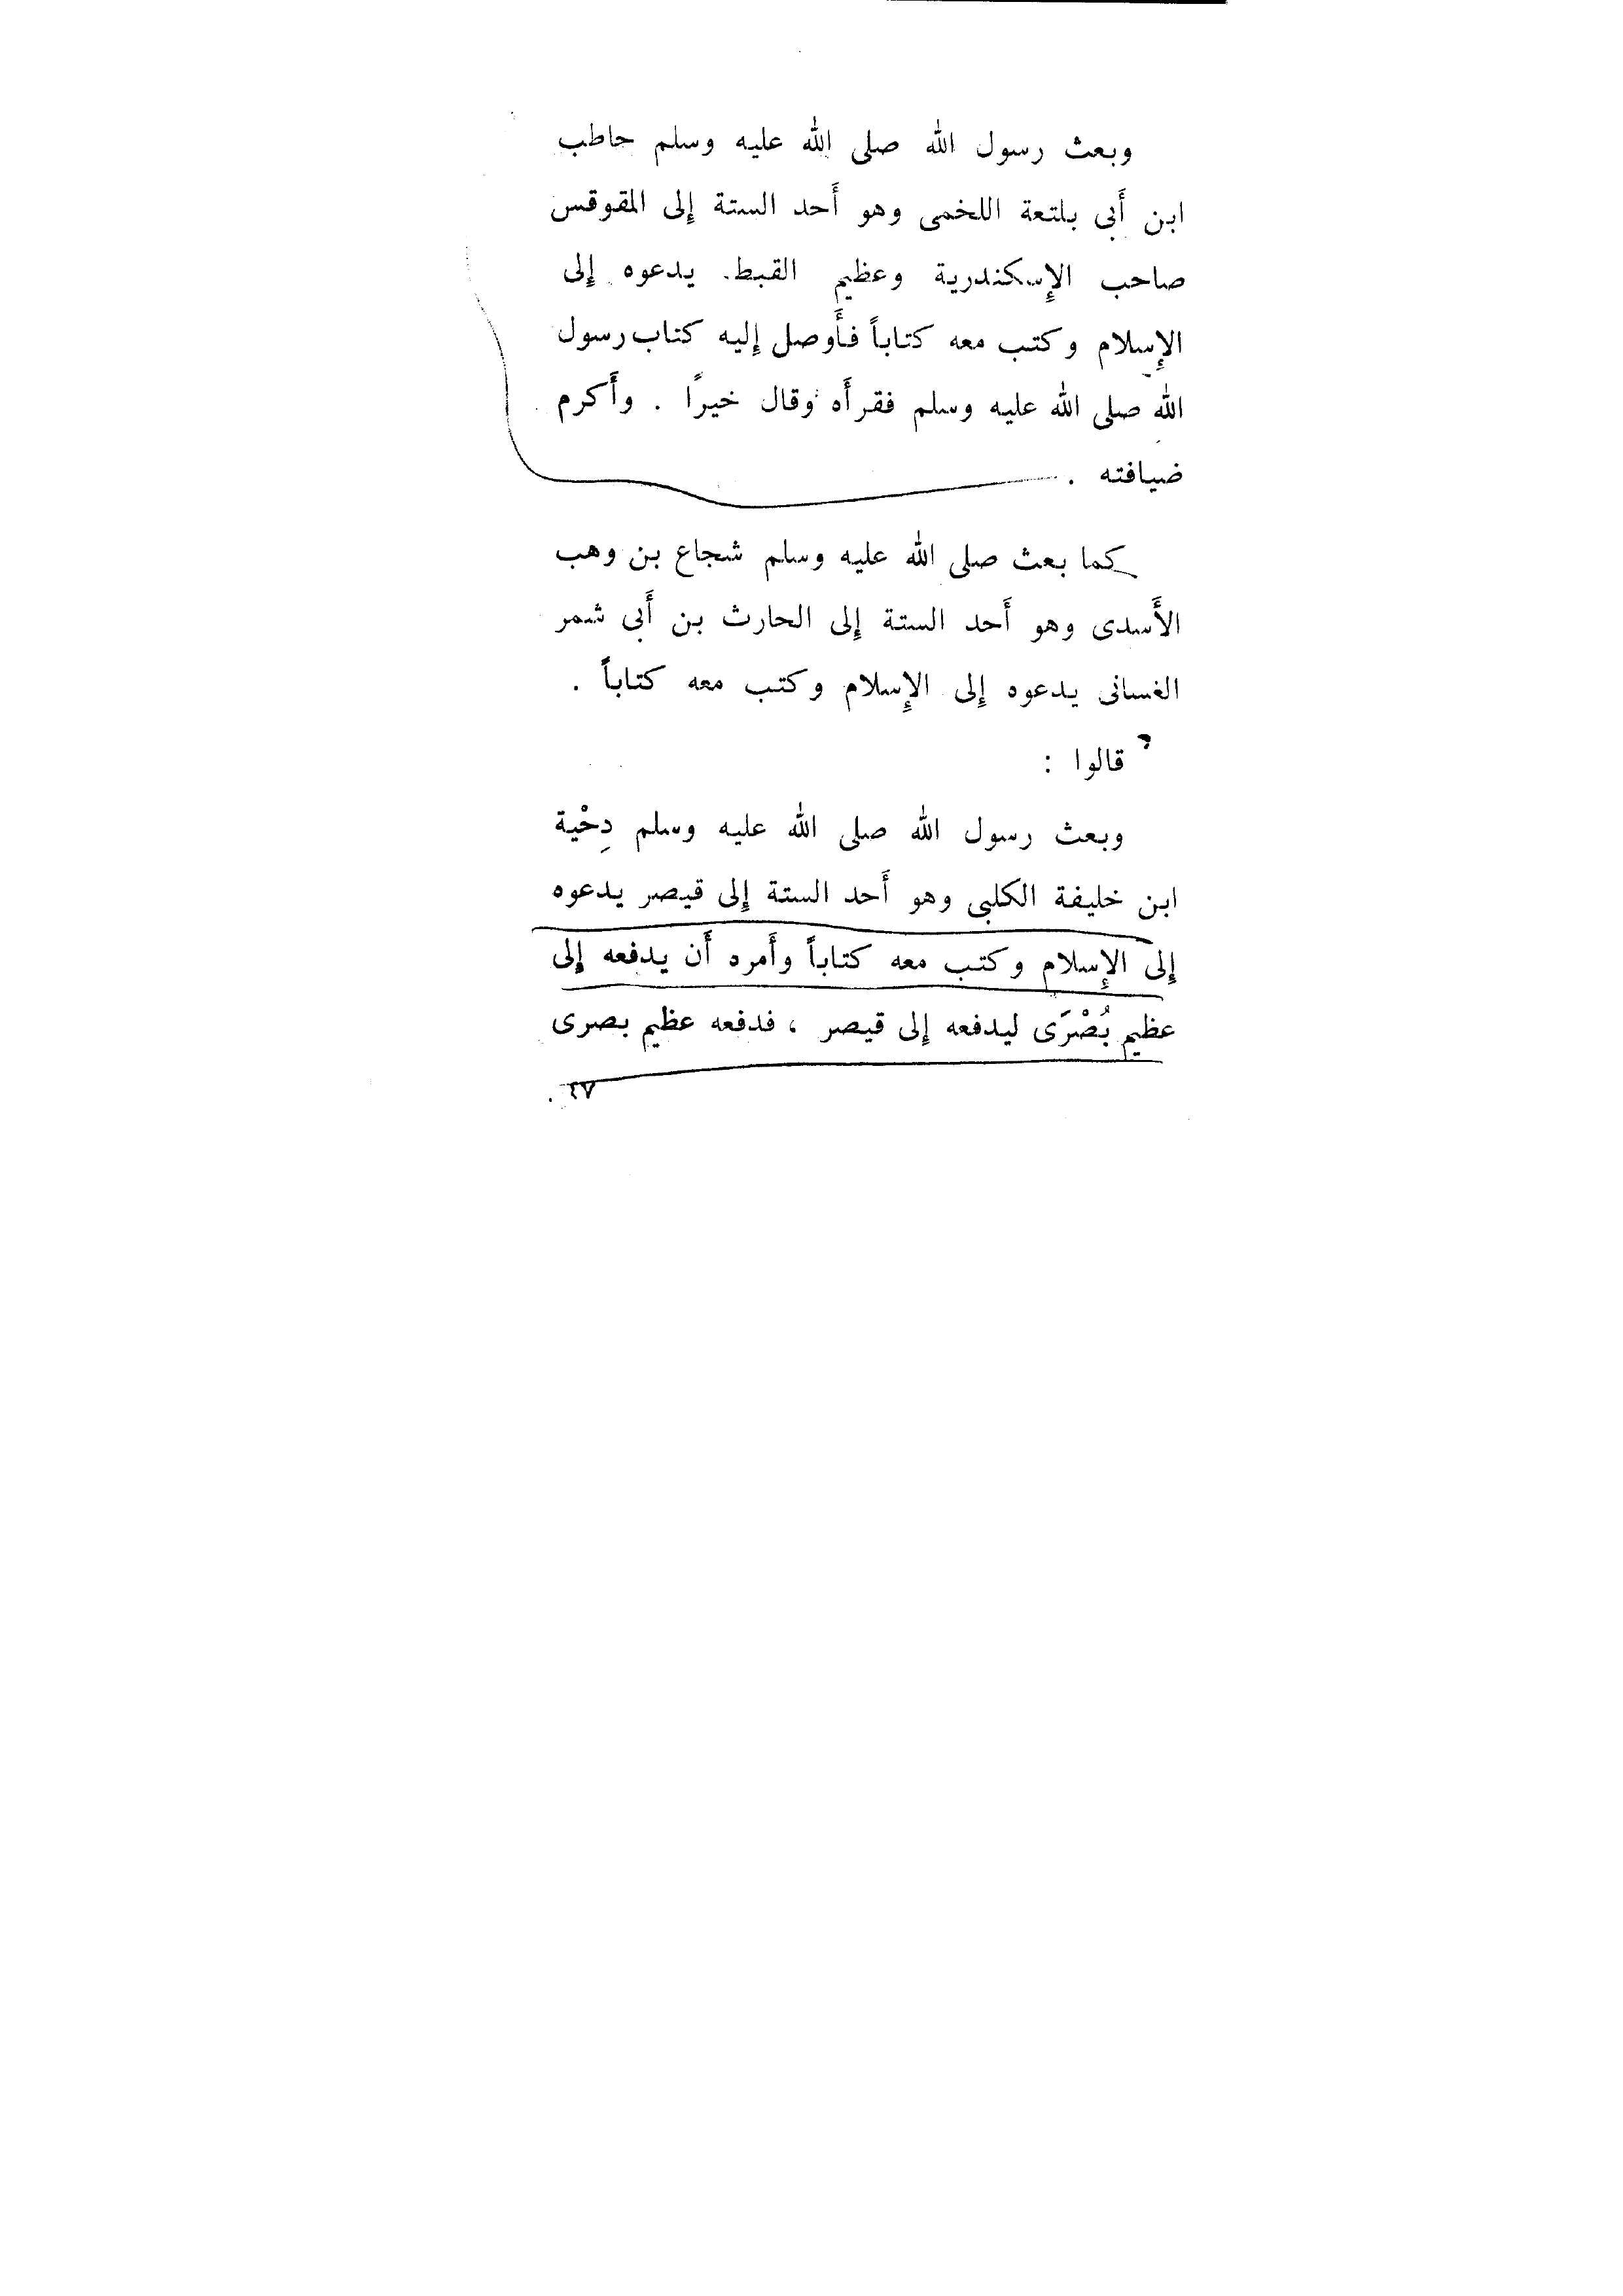 وبعث رسول الله صلى الله عليه وسلم حاطب
ابن أَبى بلتعة اللخمى وهو أَحد الستة إِلى المقوقس
صاحب الإِسكندرية وعظيم القبط. يدعوه إِلى
الإِسلام وكتب معه كتاباً فأَوصل إِليه كتاب رسول
الله صلى الله عليه وسلم فقرأَه وقال خيرًا . وأَكرم
ضيافته .
كما بعث صلى الله عليه وسلم شجاع بن وهب
الأَسدى وهو أَحد الستة إِلى الحارث بن أَبى شمر
الغسانى يدعوه إِلى الإِسلام وكتب معه كتاباً .
قالوا :
وبعث رسول الله صلى الله عليه وسلم دِحْية
ابن خليفة الكلبى وهو أَحد الستة إِلى قيصر يدعوه
إِلى الإِسلام وكتب معه كتاباً وأَمره أَن يدفعه إِلى
عظيم بُصْرَى ليدفعه إِلى قيصر ، فدفعه عظيم بصرى
٤٧